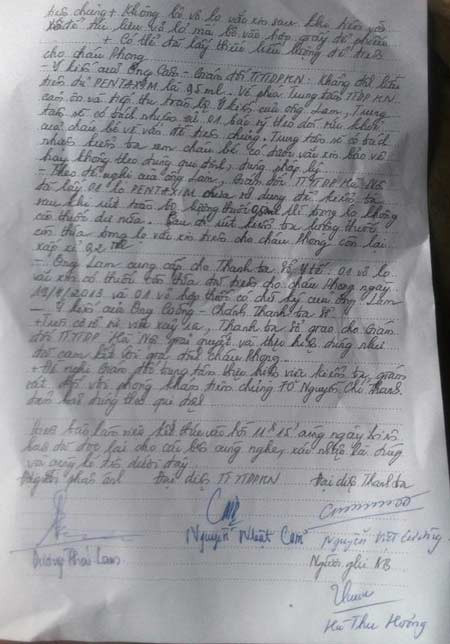 tiêm chủng + Không bỏ vỏ lọ vắc xin sau khi tiêm vào
để thu liệu vỏ lọ mà bỏ vào hộp giấy để phiếu
+ Có thể đã lấy thiếu liều lượng để tiêm
cho cháu Phong
- Ý kiến của Ông Cảm - Giám đốc TTYTDP HN. Không đủ liều
tiêm đủ PENTAXIM là 0,5ml. Về phía Trung tâm YTDP HN
cảm ơn và tiếp thu toàn bộ ý kiến của ông Lam, Trung
tâm sẽ có trách nhiệm cử 01 bác sỹ theo dõi sức khỏe
của cháu bé về vấn đề tiêm chủng. Trung tâm sẽ có trách
nhiệm kiểm tra xem cháu bé có được vắc xin bảo vệ
hay không theo đúng qui định, đúng pháp lý.
- Theo đề nghị của ông Lam, Giám đốc TTYTDP Hà Nội
đã lấy 01 lọ PENTAXIM chưa sử dụng để kiểm tra
sau khi rút toàn bộ lượng thuốc 0,5ml thì trong lọ không
còn thuốc dư nữa. Sau đó rút kiểm tra lượng thuốc
còn thừa trong lọ vắc xin tiêm cho cháu Phong còn lại
xấp xỉ 0,2 ml
- Ông Lam cung cấp cho Thanh tra Sở Y tế 01 vỏ lọ
vắc xin có thuốc còn thừa đã tiêm cho cháu Phong ngày
19/4/2013 và 01 vỏ hộp thuốc có chữ ký của ông Lam
- Ý kiến của Ông Cường - Chánh Thanh tra Sở
+ Trên cơ sở sự việc xảy ra, Thanh tra Sở giao cho Giám
đốc TTYTDP Hà Nội giải quyết và thực hiện đúng như
đã cam kết với gia đình cháu Phong.
+ Đề nghị Giám đốc trung tâm thực hiện việc kiểm tra, giám
sát đối với phòng khám tiêm chủng 70 Nguyễn Chí Thanh
đảm bảo đúng theo qui định
Biên bản làm việc kết thúc vào hồi 11h15' cùng ngày, biên
bản đã đọc lại cho các bên cùng nghe, xác nhận là đúng
và cùng ký tên dưới đây
Người phản ánh Đại diện TTYTDPHN Đại diện Thanh tra
Dương Phái Lam Nguyễn Nhật Cảm Nguyễn Việt Cường
Người ghi BB
Hà Thu Hương